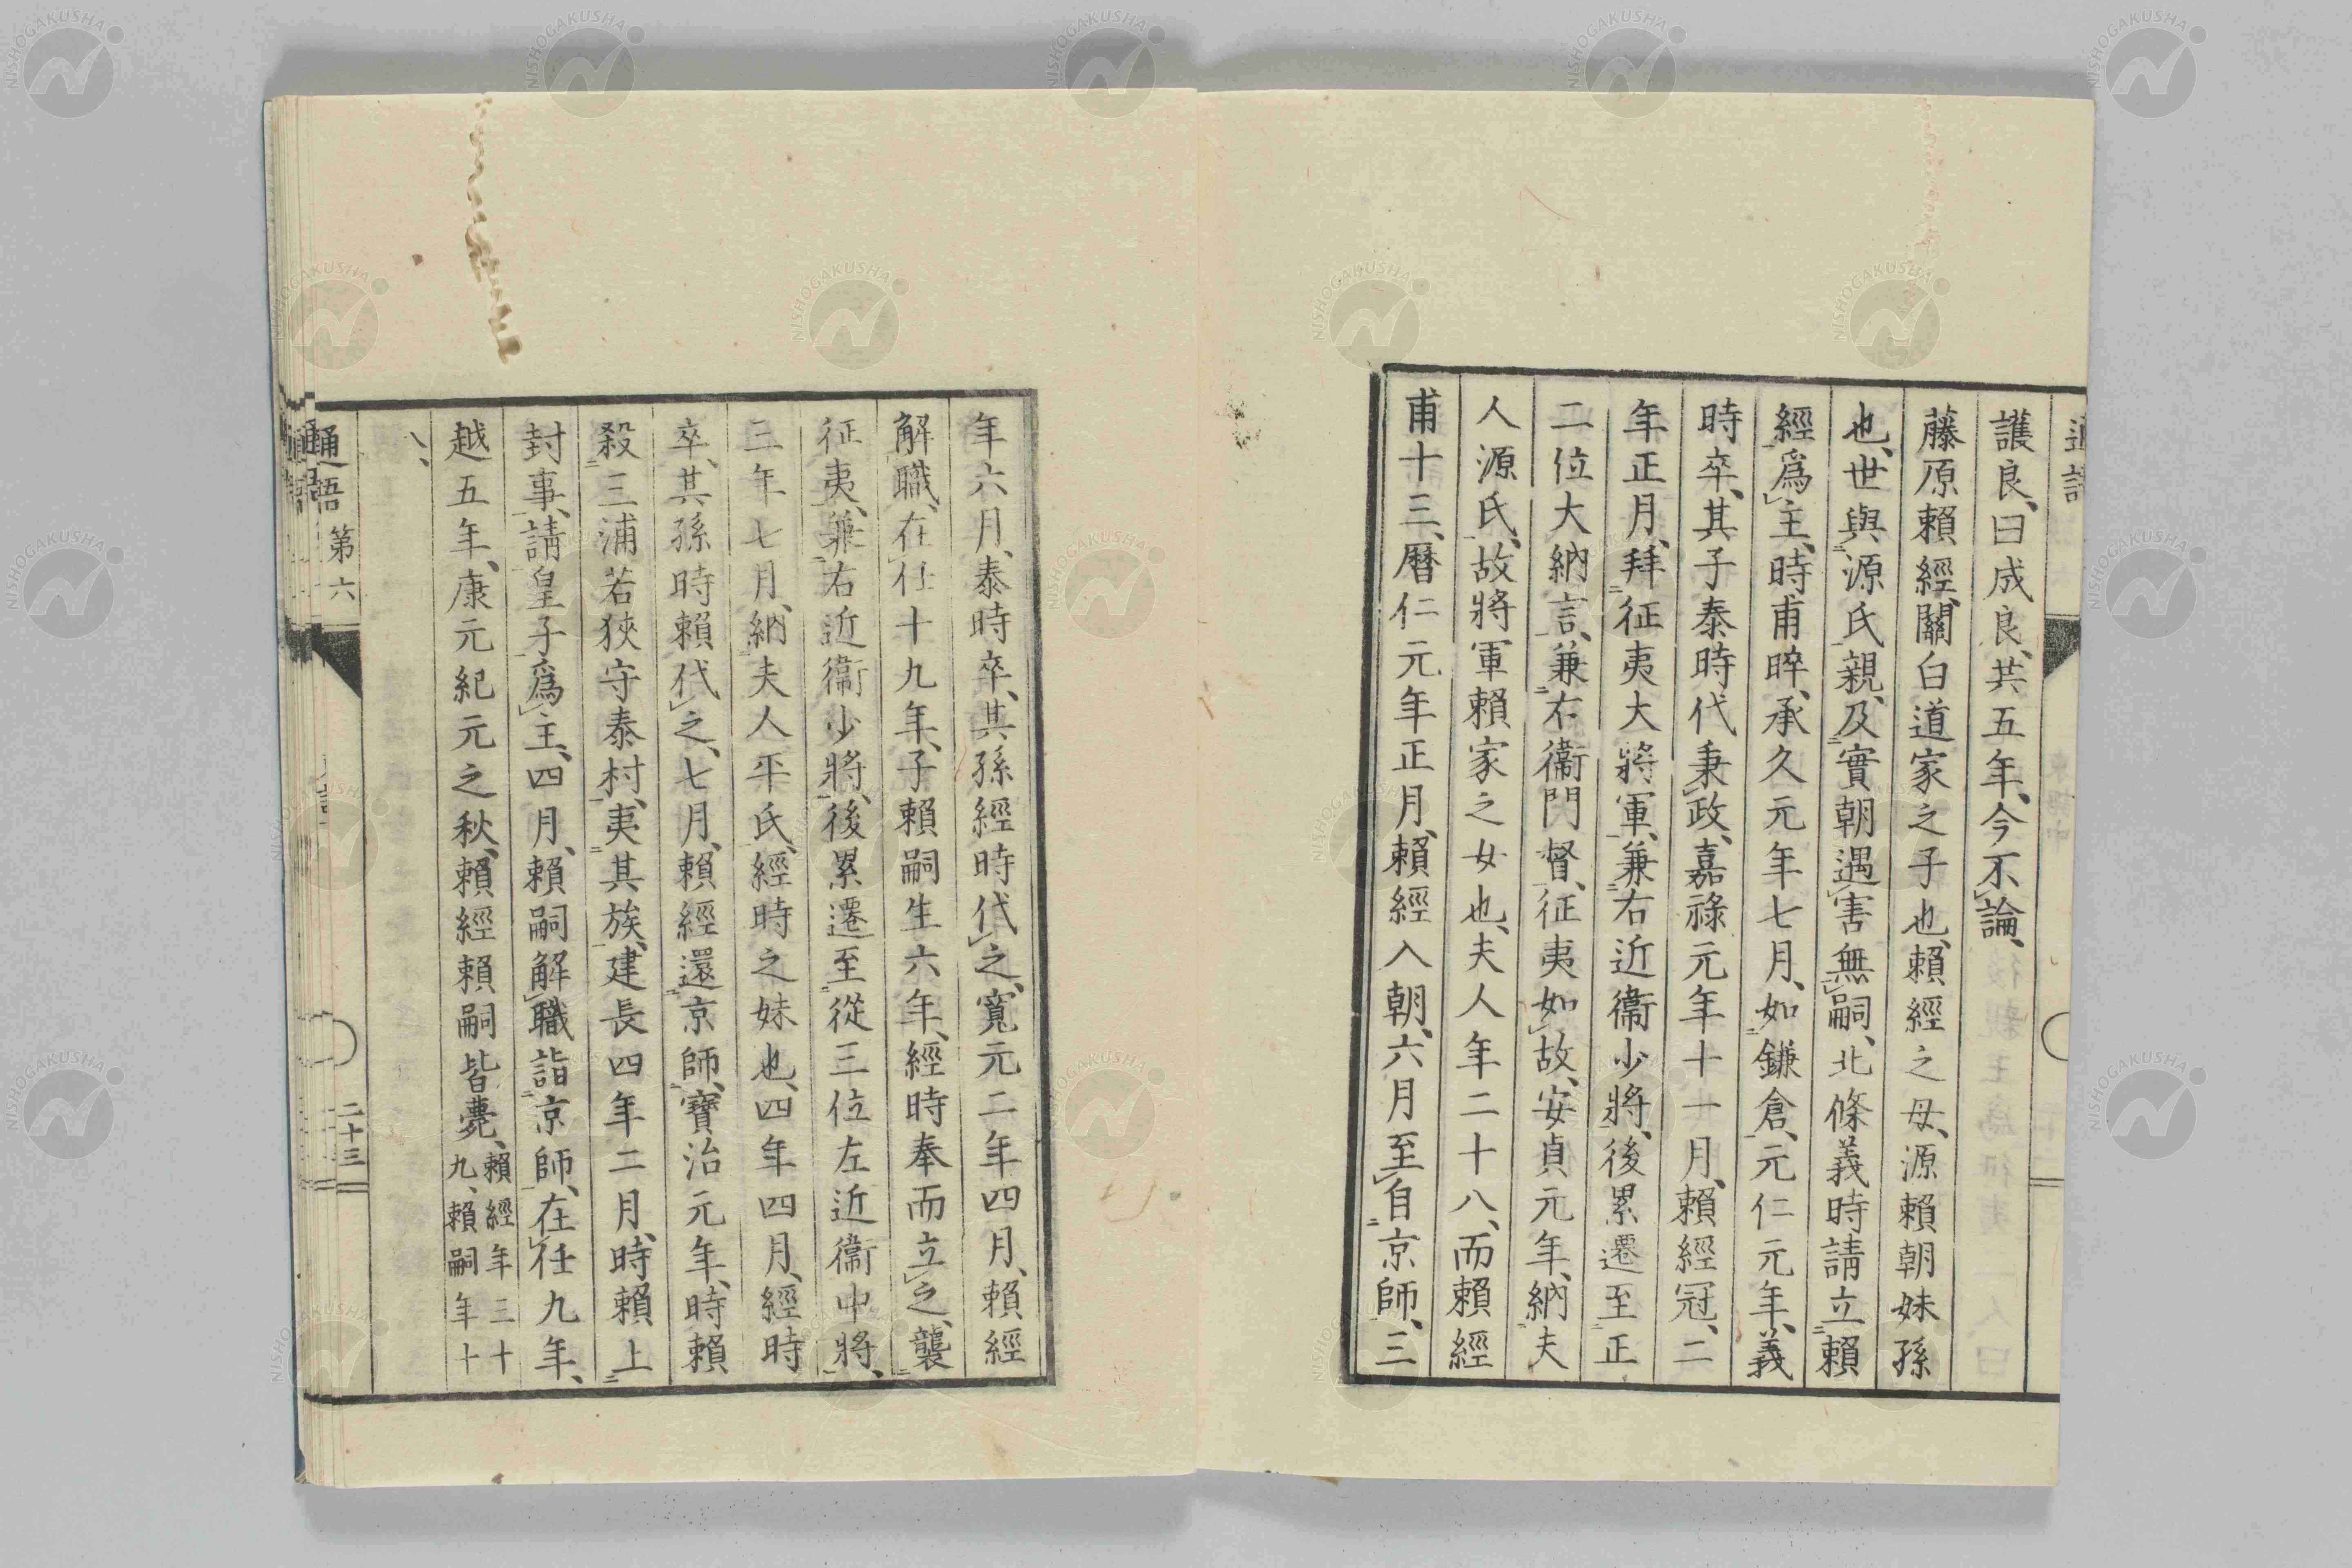 護良、曰成良、共五年、今不論、
藤原賴經、關白道家之子也、賴經之母、源賴朝妹孫
也、世與源氏親、及實朝遇害無嗣、北條義時請立賴
經爲主、時甫晬、承久元年七月、如鎌倉、元仁元年、義
時卒、其子泰時代秉政、嘉祿元年十一月、賴經冠、二
年正月、拜征夷大將軍、兼右近衞少將、後累遷至正
二位大納言、兼右衞門督、征夷如故、安貞元年、納夫
人源氏、故將軍賴家之女也、夫人年二十八、而賴經
甫十三、曆仁元年正月、賴經入朝、六月至自京師、三
年六月、泰時卒、其孫經時代之、寬元二年四月、賴經
解職、在任十九年、子賴嗣生六年、經時奉而立之、襲
征夷、兼右近衞少將、後累遷至從三位左近衞中將、
三年七月、納夫人平氏、經時之妹也、四年四月、經時
卒、其孫時賴代之、七月、賴經還京師、寶治元年、時賴
殺三浦若狹守泰村、夷其族、建長四年二月、時賴上
封事、請皇子爲主、四月、賴嗣解職詣京師、在任九年、
越五年、康元紀元之秋、賴經賴嗣皆薨、賴經年三十
九、賴嗣年十
八、
通語 第六
二十三
NISHOGAKUSHA